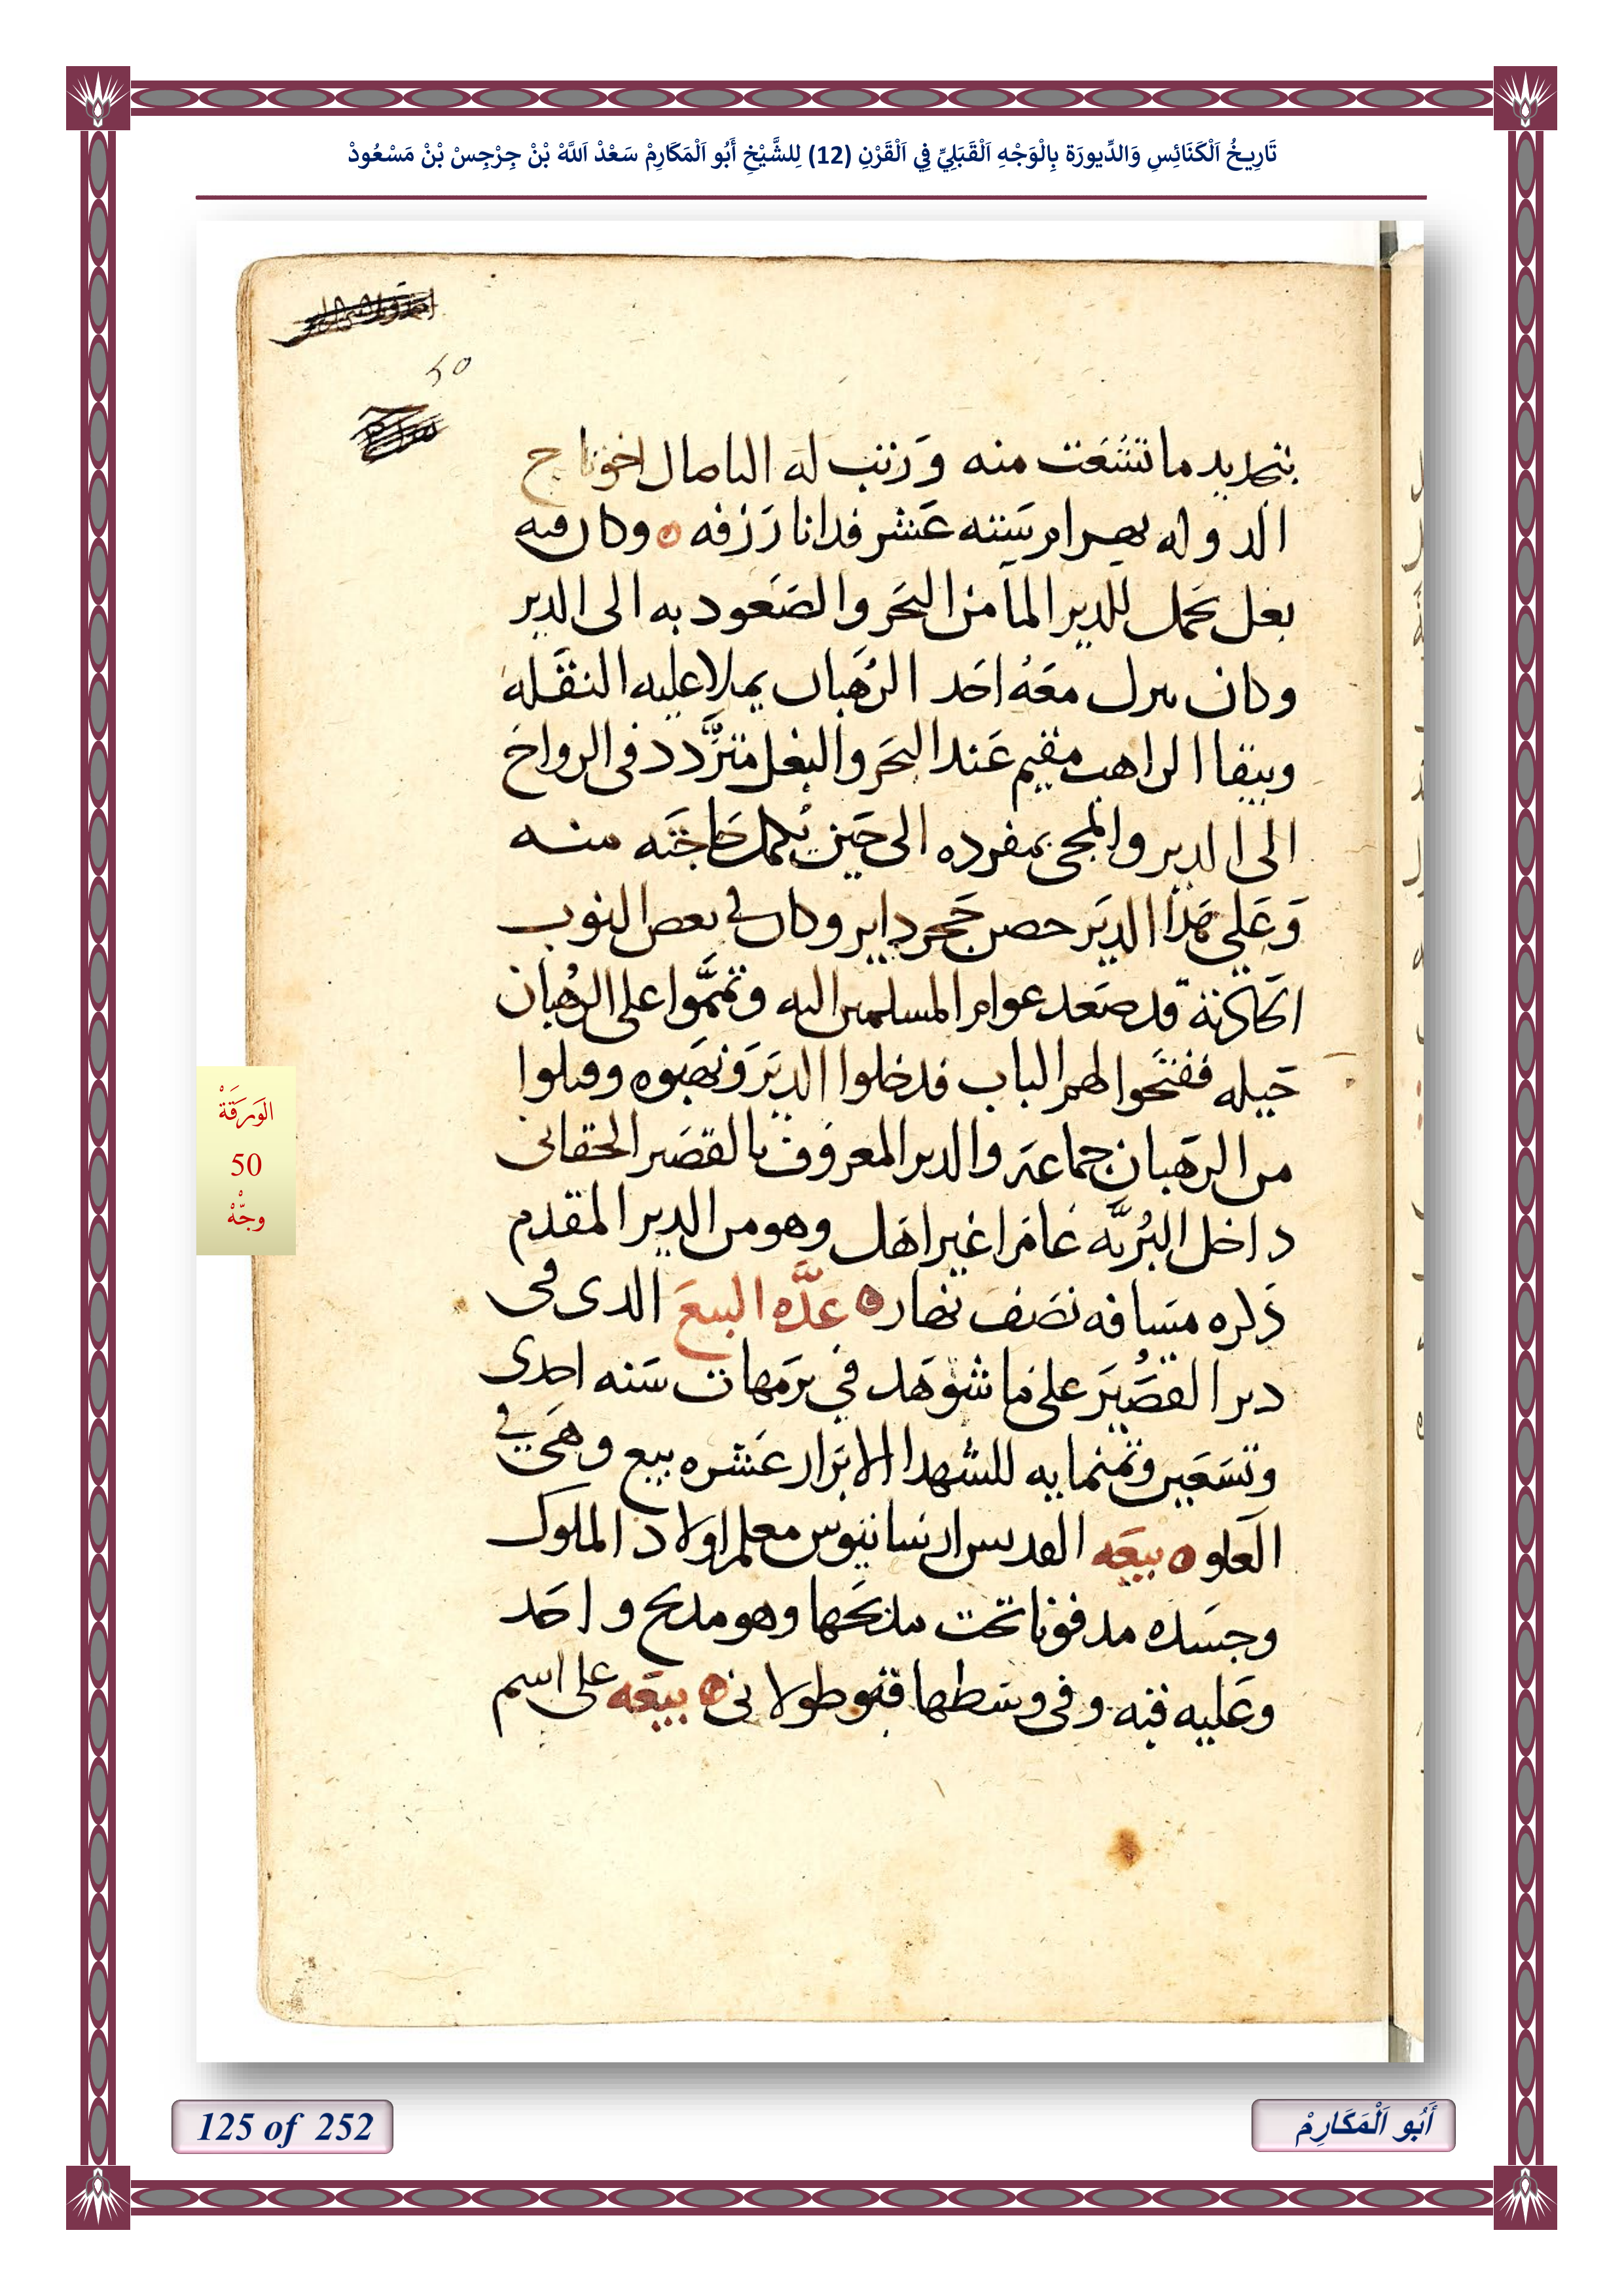 تَارِيخُ اَلْكَنَائِسِ وَالدِّيورَة بِالْوَجْهِ اَلْقَبَلِيِّ فِي اَلْقَرْنِ (12) لِلشَّيْخِ أَبُو اَلْمَكَارِمْ سَعْدْ اَللَّهْ بْنْ جِرْجِسْ بْنْ مَسْعُودْ
50
بتجديد ما تشعت منه ورتب له الباصال اخو تاج
الدوله بهرام سته عشر فدانا رزقه وكان فيه
بغل يحمل للدير الما من البحر والصعود به الى الدير
وكان ينزل معه احد الرهبان يملا عليه النقله
ويبقا الراهب مقيم عند البحر والبغل متردد في الرواح
الى الدير والمجى بمفرده الى حين تكمل حاجته منه
وعلى هذا الدير حصن حجر داير وكان في بعض النوب
الحادثة قد صعد عوام المسلمين اليه وتمموا على الرهبان
حيله ففتحوا لهم الباب فدخلوا الدير ونهبوه وقتلوا
من الرهبان جماعة والدير المعروف بالقصير الحقانى
داخل البريه عامرا غير اهل وهو من الدير المقدم
ذكره مسافه نصف نهار عده البيع الدى فى
دير القصير على ما شوهد في برمهات سنه احدى
وتسعين وتمنمايه للشهدا الابرار عشره بيع وهي في
العلو بيعه القديس ارسانيوس معلم اولاد الملوك
وجسده مدفونا تحت مدبحها وهو مدبح واحد
وعليه قبه وفى وسطها قبو طولانى بيعه على اسم
الوَرَقَةْ
50
وجْهْ
125 of 252
أَبُو اَلْمَكَارِمْ